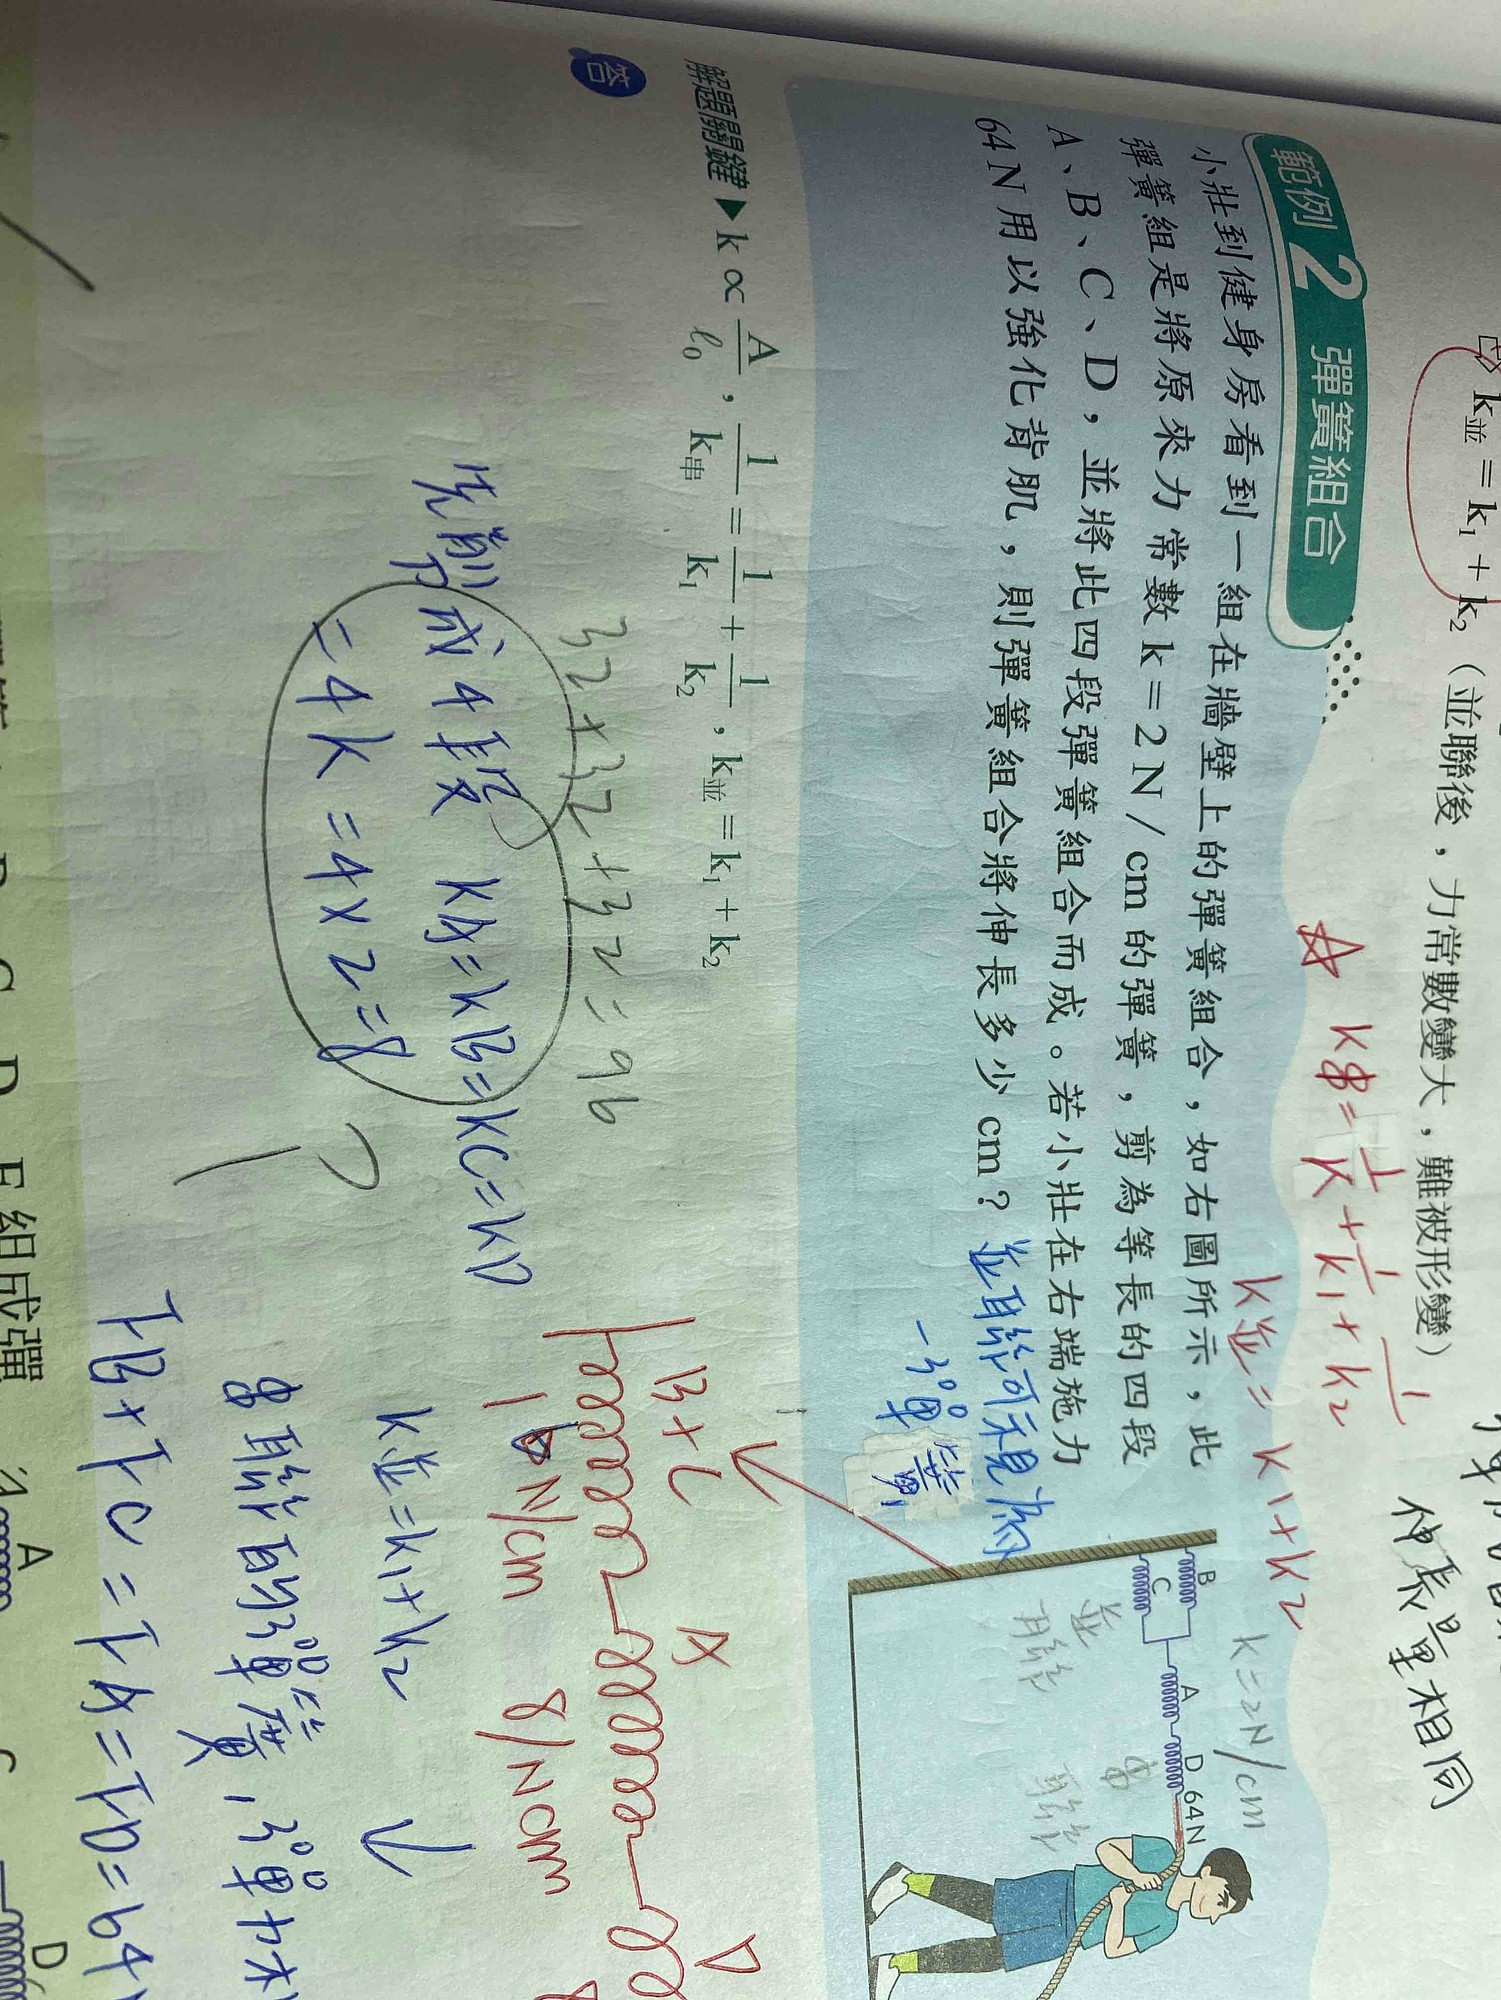 ⇨ k並 = k₁ + k₂（並聯後，力常數變大，難被形變）
伸長量相同
範例 2 彈簧組合
☆ k串 = 1/k + 1/k₁ + 1/k₂
k並 = k1+k2
k=2N/cm
小壯到健身房看到一組在牆壁上的彈簧組合，如右圖所示，此
彈簧組是將原來力常數 k = 2 N / cm 的彈簧，剪為等長的四段
A、B、C、D，並將此四段彈簧組合而成。若小壯在右端施力
64 N 用以強化背肌，則彈簧組合將伸長多少 cm？
並聯可視為
一彈簧
B
C
A
D
64N
並聯
串聯
解題關鍵▶ k ∝ A/ℓ₀，1/k串 = 1/k₁ + 1/k₂，k並 = k₁ + k₂
答
32+32+32=96
先剪成4段 kA=kB=kC=kD
=4k=4×2=8
B+C
A
D
N/cm
8/Ncm
k並=k1+k2
串聯的彈簧，彈力
FB+FC=FA=FD=64
E 組成彈
A
D